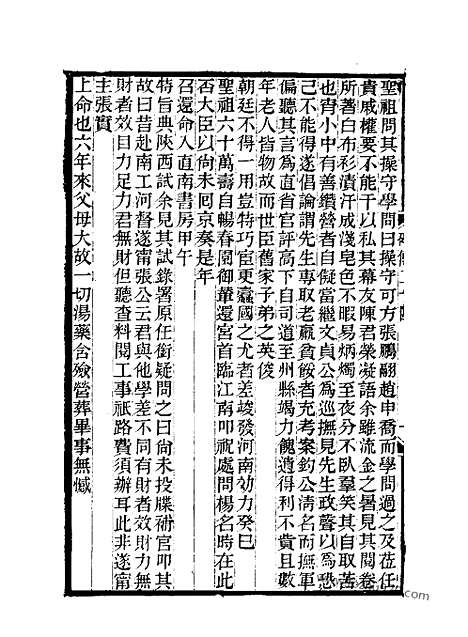 聖祖問其操守學問曰操守可方張鵬翮趙申喬而學問過之及莅任
貴戚權要不能干以私其幕友陳君榮凝語余雖流金之暑見其閱卷
所著白布衫漬汗成淺皂色不暇易炳燭至夜分不臥羣笑其自取苦
也胄小中有善鑽營者自儗當繼文貞公為巡撫見先生政聲以為愬
己不能得遂倡論謂先生專取老羸貧餒者充考案釣公清名而撫軍
偏聽其言為直省官評高下自司道至州縣竭力餽遺得利不貲且數
年老人皆物故而世臣舊家子弟之英俊
朝廷不得一用豈特巧宦更蠹國之尤者差竣發河南効力癸巳
聖祖六十萬壽自暢春園御輦還宮首臨江南叩祝處問楊名時在此
否大臣以尚未囘京奏是年
召還命入直南書房甲午
特旨典陝西試余見其試錄署原任銜疑問之曰尚未投牒補官叩其
故曰昔赴南工河督遂甯張公云君與他學差不同有財者效財力無
財者效目力足力君無財但聽查料閱工事祇路費須辦耳此非遂甯
主張實
上命也六年來父母大故一切湯藥含殮營葬畢事無憾